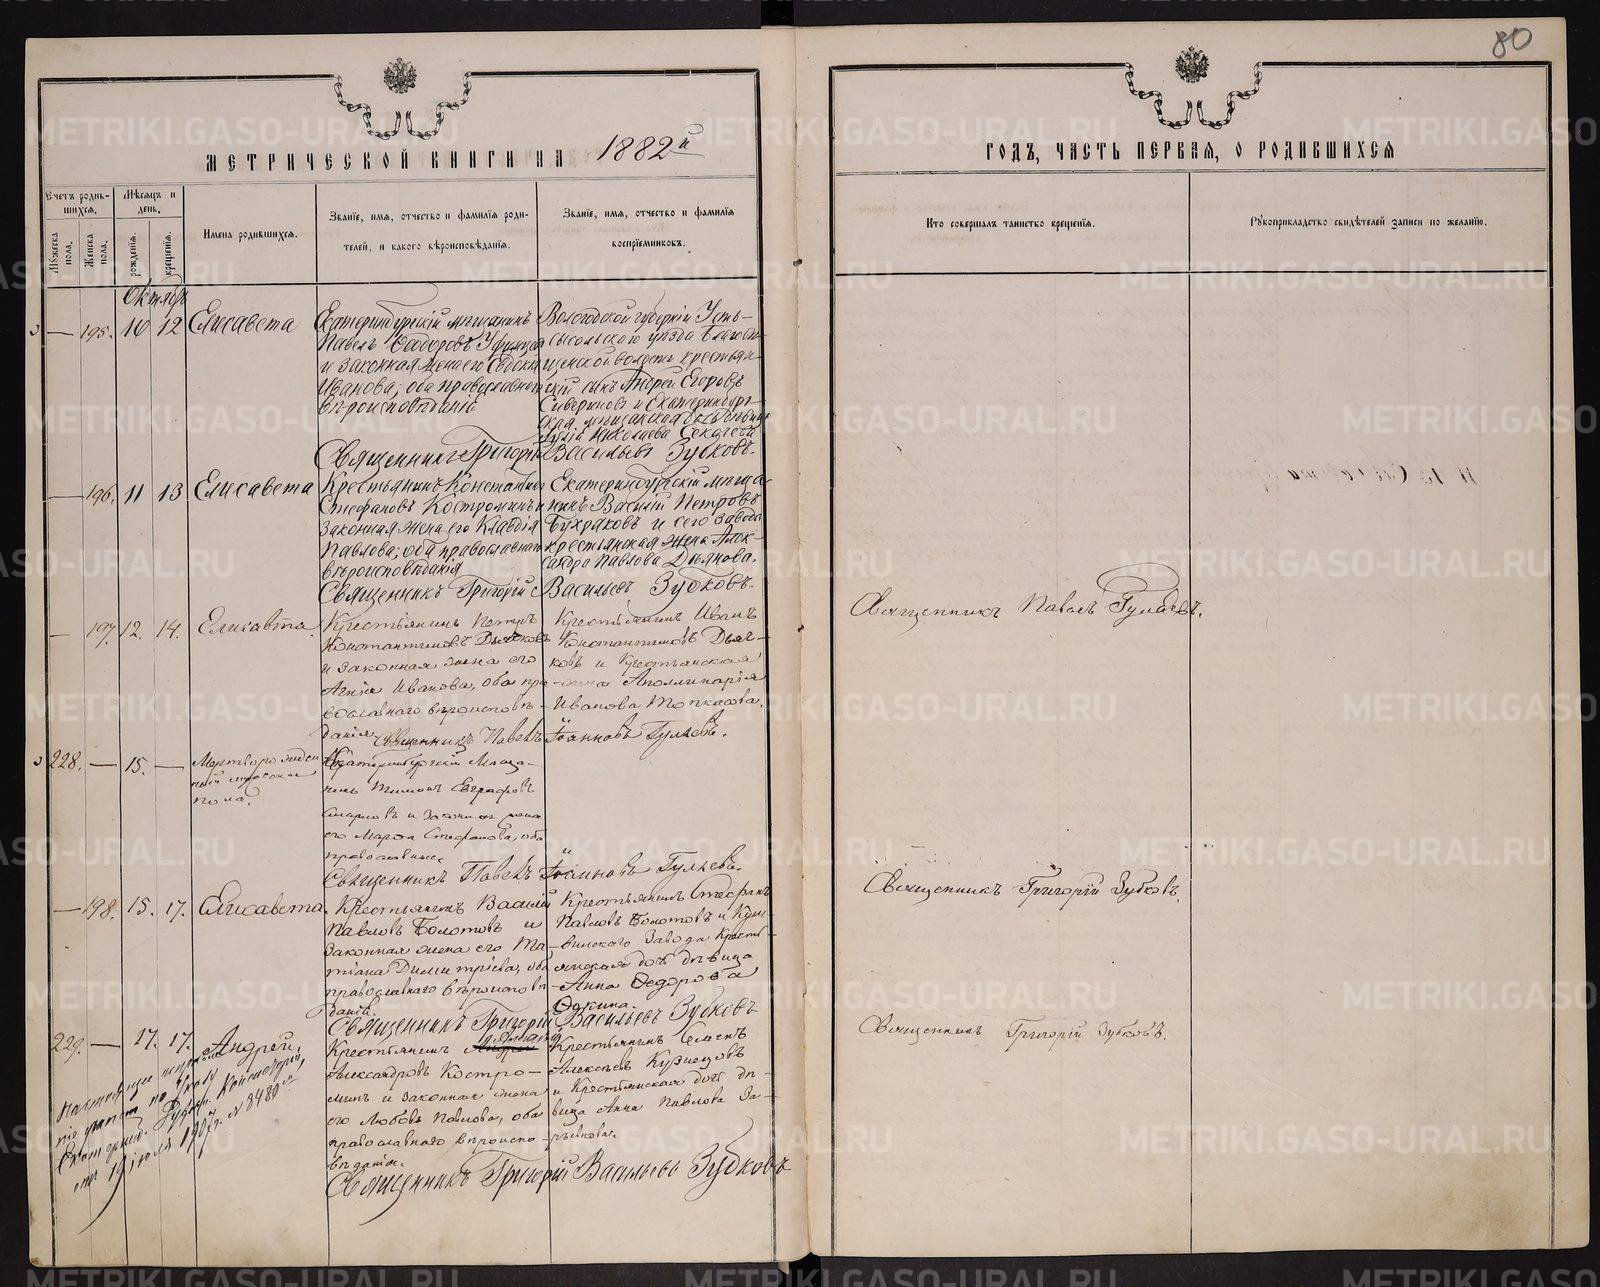 80
МЕТРИЧЕСКОЙ КНИГИ НА 1882й
ГОДЪ, ЧАСТЬ ПЕРВАЯ, О РОДИВШИХСЯ
Счетъ родив-
шихся.
Мужеска пола.
Женска пола.
Мѣсяцъ и
день.
рожденія.
крещенія.
Имена родившихся.
Званіе, имя, отчество и фамилія роди-
телей, и какого вѣроисповѣданія.
Званіе, имя, отчество и фамилія
воспріемниковъ.
Кто совершалъ таинство крещенія.
Рукоприкладство свидѣтелей записи по желанію.
Октябрь
— 195. 10 12 Елисавета
Екатеринбургскій мѣщанинъ
Павелъ Ѳедоровъ
и законная жена его Евдокія
Иванова, оба православнаго
вѣроисповѣданія
Вологодской губерніи Усть-
сысольскаго уѣзда
щенской волости крестьян-
скій сынъ Андрей Егоровъ
и Екатеринбург-
ская мѣщанская
Николаева
Священникъ Григорій Васильевъ Зубковъ.
— 196. 11 13 Елисавета
Крестьянинъ Константинъ
Стефановъ Костроминъ и
законная жена его Клавдія
Павлова, оба православнаго
вѣроисповѣданія
Екатеринбургскій мѣща-
нинъ Василій Петровъ
и сего завода
крестьянская жена Алек-
сандра Павлова
Священникъ Григорій Васильевъ Зубковъ.
— 197. 12. 14. Елисавета.
Крестьянинъ Петръ
Константиновъ
и законная жена его
Агнія Иванова, оба пра-
вославнаго вѣроисповѣ-
данія
Крестьянинъ Иванъ
Константиновъ Дьяч-
ковъ и Крестьянская
Аполлинарія
Иванова
Священникъ Павелъ Іоанновъ Гуляевъ.
Священникъ Павелъ Гуляевъ.
228. — 15. — Мертворожден
ный мужеска
пола.
Екатеринбургскій Мѣща-
нинъ Тимонъ Евграфовъ
и законная жена
его Марѳа Стефанова, оба
православные.
Священникъ Павелъ Іоанновъ Гуляевъ.
— 198. 15. 17. Елисавета.
Крестьянинъ Василій
Павловъ Болотовъ и
законная жена его Та-
тіана Димитріева, оба
православнаго вѣроисповѣ-
данія.
Крестьянинъ Стефанъ
Павловъ Болотовъ и Куш-
винскаго Завода Кресть-
янская дочь дѣвица
Анна Ѳедорова
Священникъ Григорій Васильевъ Зубковъ
Священникъ Григорій Зубковъ.
229. — 17. 17. Андрей.
Крестьянинъ
Александровъ Костро-
минъ и законная жена
его Любовь Павлова, оба
православнаго вѣроиспо-
вѣданія.
Крестьянинъ Семенъ
Алексѣевъ Кузнецовъ
и Крестьянская дочь дѣ-
вица Анна Павлова
Священникъ Григорій Васильевъ Зубковъ
Священникъ Григорій Зубковъ.
по указу
Екатеринб. Духовн. Консисторіи,
отъ 19 іюля 1907 г. № 8480
METRIKI.GASO-URAL.RU